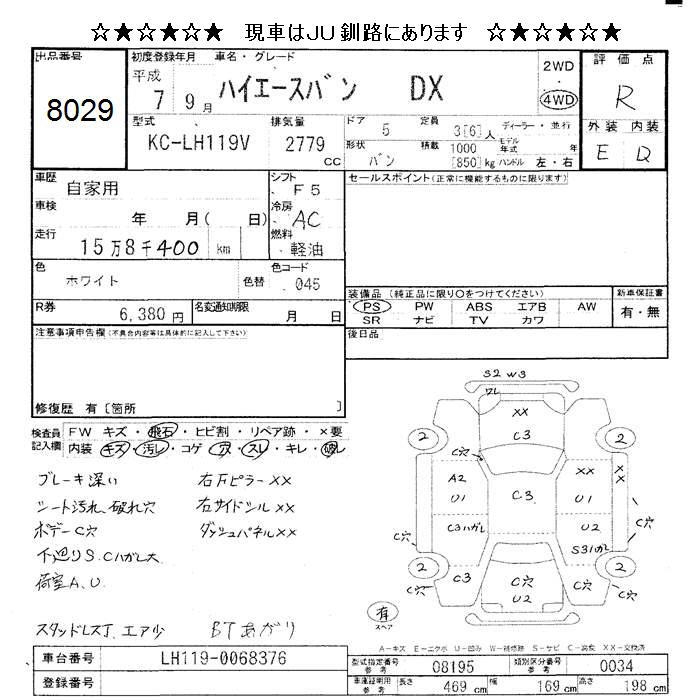 ☆★☆★☆★☆ 現車はJU釧路にあります ☆★☆★☆★☆
出品番号 8029
初度登録年月 平成 7 9月
車名・グレード ハイエースバン DX
2WD ・ 4WD
評価点 R
型式 KC-LH119V
排気量 2779 cc
ドア 5
定員 3[6]人
ディーラー・並行
形状 バン
積載 1000 [850]kg
モデル年式 年
ハンドル 左・右
外装 E
内装 D
車歴 自家用
シフト F5
セールスポイント(正常に機能するものに限ります)
車検 年 月( 日)
冷房 AC
走行 15万8千400 km
燃料 軽油
色 ホワイト
色替
色コード 045
装備品 (純正品に限り○をつけてください)
PS PW ABS エアB AW
SR ナビ TV カワ
新車保証書 有・無
R券 6,380円
名変通知期限 月 日
後日品
注意事項申告欄(不具合内容等は具体的に記入して下さい)
修復歴 有〔箇所 〕
検査員記入欄
FW キズ・飛石・ヒビ割・リペア跡・×要
内装 キズ・汚レ・コゲ・穴・スレ・キレ・破レ
ブレーキ深い
シート汚れ、破れ穴
ボデーC穴
下廻りS.Cハガレ大
荷室A.U
右Fピラー××
右サイドシル××
ダッシュパネル××
スタッドレスT. エア少
BTあがり
S2 W3
ワレ
××
C3
2 2
C穴
A2 U1
C3
×× U1
××
C3ハガレ
U2
S3ハガレ
C穴
C穴
2 2
C穴
C3
C穴 U2
C穴
C穴
有 スペア
A-キズ E-エクボ U-凹み W-補修跡 S-サビ C-腐食 XX-交換済
車台番号 LH119-0068376
登録番号
型式指定番号 参考 08195
類別区分番号 参考 0034
車庫証明用 参考 長さ 469 cm 幅 169 cm 高さ 198 cm